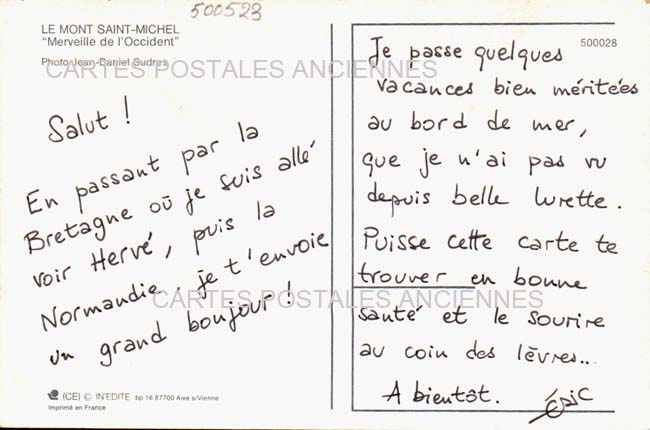 500523
LE MONT SAINT-MICHEL
"Merveille de l'Occident"
Photo Jean-Daniel Sudres
CARTES POSTALES ANCIENNES
Salut !
En passant par la
Bretagne où je suis allé
voir Hervé, puis la
Normandie, je t'envoie
un grand bonjour !
CARTES POSTALES ANCIENNES
(CE) © IN'EDITE bp 16 87700 Aixe s/Vienne
Imprimé en France
500028
Je passe quelques
vacances bien méritées
au bord de mer,
que je n'ai pas vu
depuis belle lurette.
Puisse cette carte te
trouver en bonne
santé et le sourire
au coin des lèvres...
A bientôt.
Eric